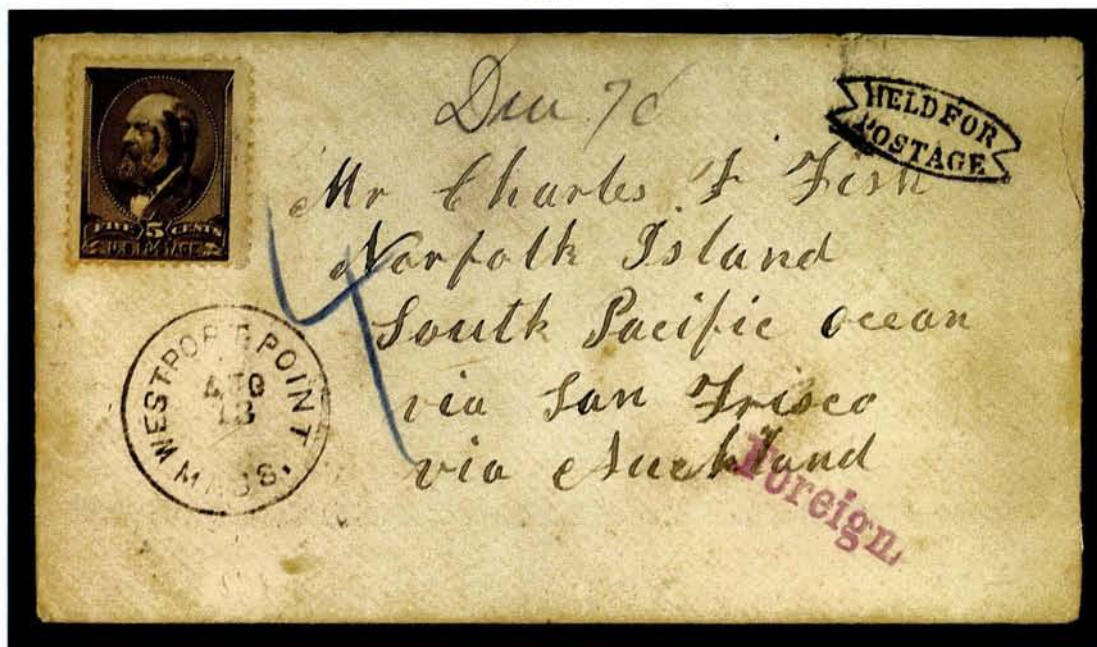 Due 7c
HELD FOR
POSTAGE
FIVE 5 CENTS
U.S. POSTAGE
Mr Charles F Fish
Norfolk Island
South Pacific ocean
via San Frisco
via Auckland
Foreign.
WESTPORT POINT
AUG
13
MASS.